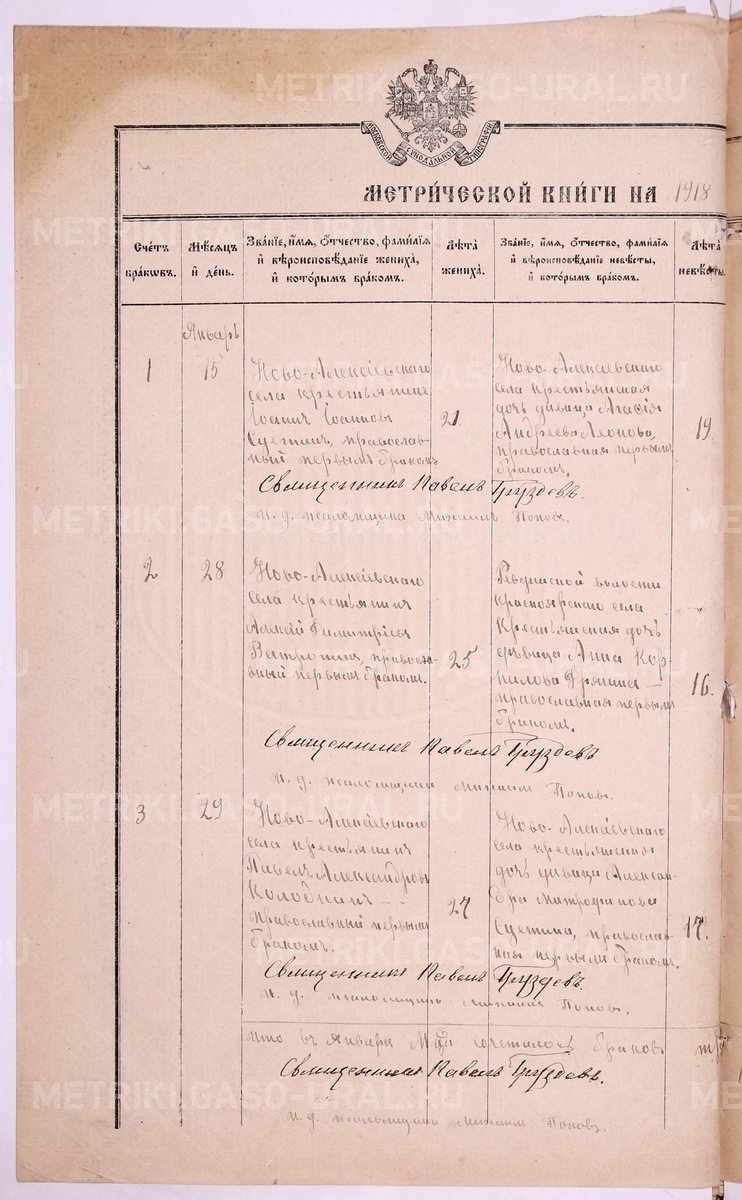 МОСКОВСКОЙ СѴНОДАЛЬНОЙ ТИПОГРАФІИ
МЕТРИ́ЧЕСКОЙ КНИ́ГИ НА 1918
Сче́тъ бра́кωвъ.
Мѣ́сяцъ и҆ де́нь.
Зва́нїе, и҆́мѧ, ѻ҆́тчество, фами́лїѧ
и҆ вѣроисповѣ́данїе жениха̀,
и҆ кото́рымъ бра́комъ.
Лѣ́та жениха̀.
Зва́нїе, и҆́мѧ, ѻ҆́тчество, фами́лїѧ
и҆ вѣроисповѣ́данїе невѣ́сты,
и҆ кото́рымъ бра́комъ.
Лѣ́та невѣ́сты.
Январь
1
15
Ново-Алексѣевскаго
села крестьянинъ
Іоаннъ Іоанновъ
Суетинъ, православ-
ный первымъ бракомъ
21.
Ново-Алексѣевскаго
села крестьянская
дочь дѣвица Агафія
Андреева Леонова,
православная первымъ
бракомъ.
19.
Священникъ Павелъ Груздевъ.
И. д. псаломщика Михаилъ Поповъ.
2
28
Ново-Алексѣевскаго
села крестьянинъ
Алексій Димитріевъ
православ-
ный первымъ бракомъ.
25
Ревдинской волости
Красноярскаго села
Крестьянская дочь
дѣвица Анна Кор-
нилова
православная первымъ
бракомъ.
16.
Священникъ Павелъ Груздевъ
И. д. псаломщика Михаилъ Поповъ.
3
29
Ново-Алексѣевскаго
села крестьянинъ
Павелъ Александровъ
Колобнинъ —
православный первымъ
бракомъ.
27
Ново-Алексѣевскаго
села крестьянская
дочь дѣвица Алексан-
дра Митрофанова
Суетина, православ-
ная первымъ бракомъ.
17.
Священникъ Павелъ Груздевъ.
И. д. псаломщика Михаилъ Поповъ.
что въ январѣ м-цѣ сочеталось браковъ
Священникъ Павелъ Груздевъ.
И. д. псаломщика Михаилъ Поповъ
METRIKI.GASO-URAL.RU